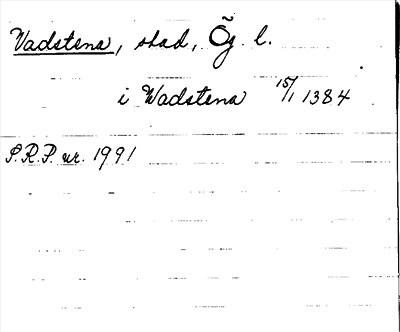 Vadstena, stad, Ög. l.
i Wadstena 15/1 1384
S.R.P. nr. 1991